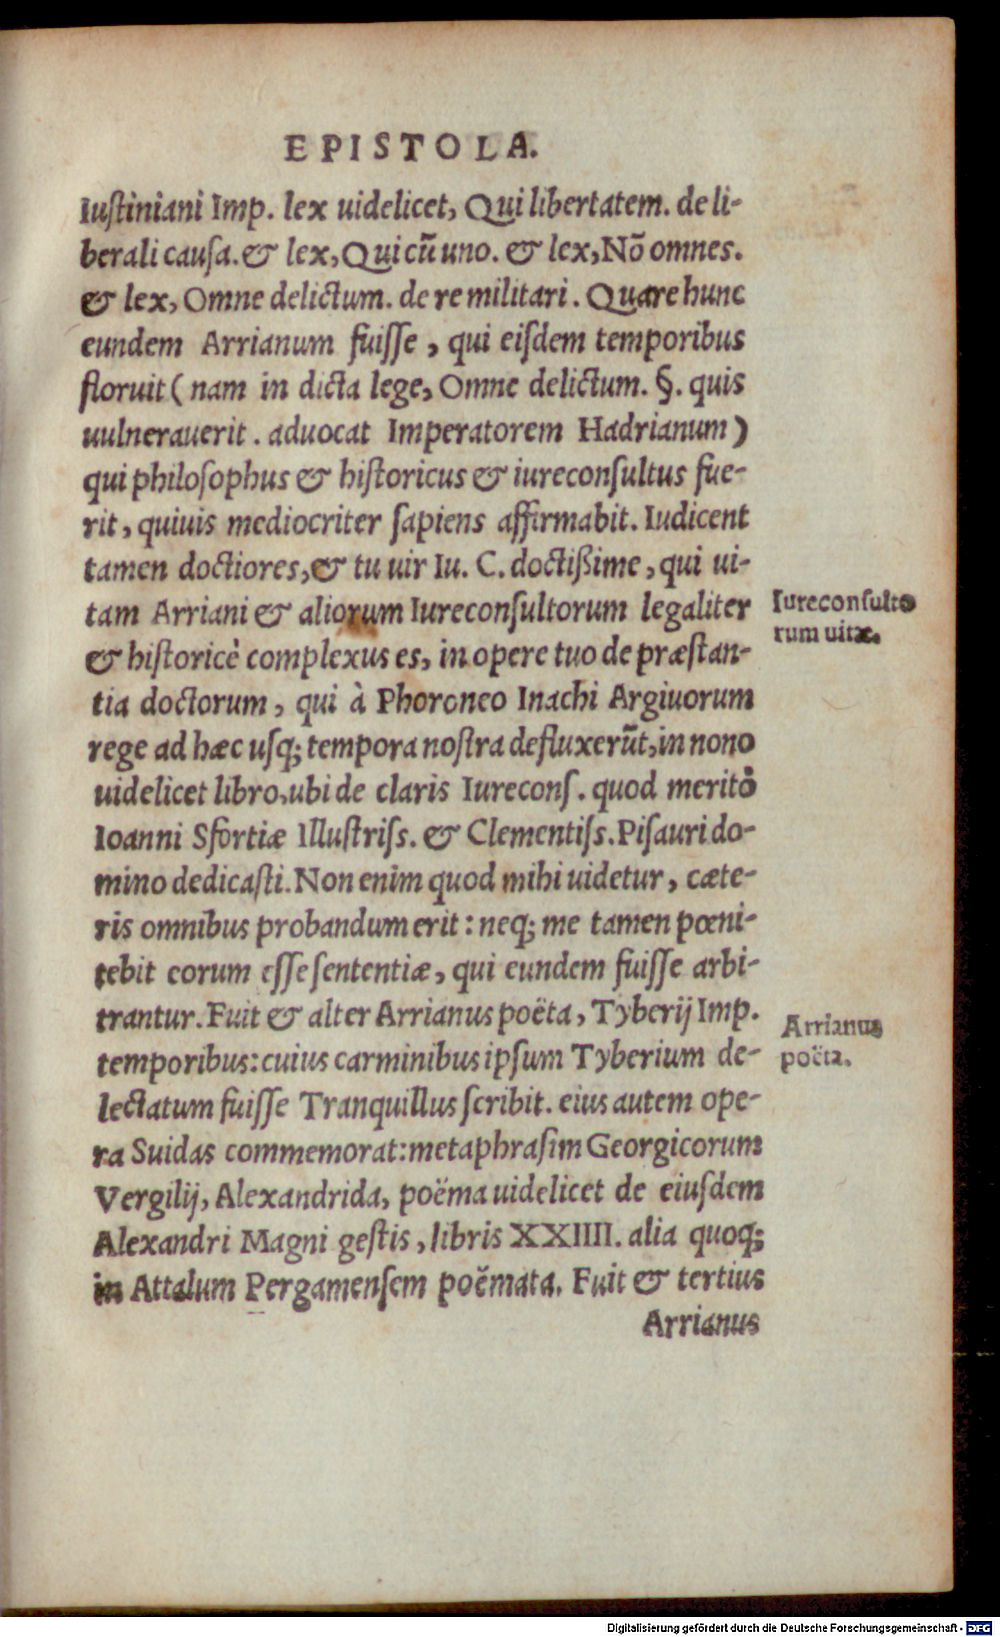 EPISTOLA.
Iustiniani Imp. lex uidelicet, Qui libertatem. de li-
berali causa. & lex, Qui cū uno. & lex, Nō omnes.
& lex, Omne delictum. de re militari. Quare hunc
eundem Arrianum fuisse, qui eisdem temporibus
floruit (nam in dicta lege, Omne delictum. §. quis
uulnerauerit. aduocat Imperatorem Hadrianum)
qui philosophus & historicus & iureconsultus fue-
rit, quiuis mediocriter sapiens affirmabit. Iudicent
tamen doctiores, & tu uir Iu. C. doctißime, qui ui-
tam Arriani & aliorum Iureconsultorum legaliter
Iureconsulto
rum uitæ.
& historicè complexus es, in opere tuo de præstan-
tia doctorum, qui à Phoroneo Inachi Argiuorum
rege ad hæc usq; tempora nostra defluxerūt, in nono
uidelicet libro, ubi de claris Iurecons. quod meritò
Ioanni Sfortiæ Illustriss. & Clementiss. Pisauri do-
mino dedicasti. Non enim quod mihi uidetur, cæte-
ris omnibus probandum erit: neq; me tamen pœni-
tebit eorum esse sententiæ, qui eundem fuisse arbi-
trantur. Fuit & alter Arrianus poëta, Tyberij Imp.
Arrianus
poëta.
temporibus: cuius carminibus ipsum Tyberium de-
lectatum fuisse Tranquillus scribit. eius autem ope-
ra Suidas commemorat: metaphrasim Georgicorum
Vergilij, Alexandrida, poëma uidelicet de eiusdem
Alexandri Magni gestis, libris XXIIII. alia quoq;
in Attalum Pergamensem poëmata. Fuit & tertius
Arrianus
Digitalisierung gefördert durch die Deutsche Forschungsgemeinschaft - DFG